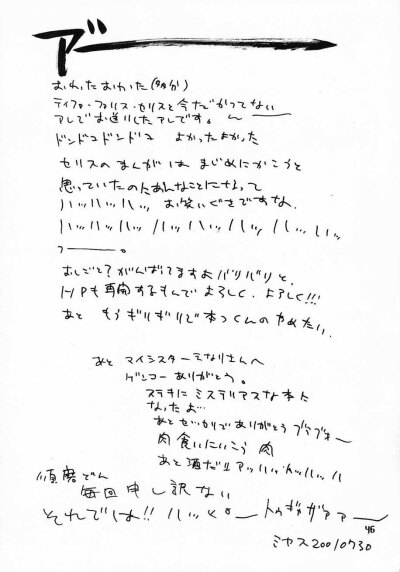 アー
おわったおわった(多分)
ティファ・フォリス・セリスと今だかつてない
アレでお送りしたアレです。
ドンドコドンドコ よかったよかった
セリスのまんがはまじめにかこうと
思っていたのにあんなことになって
ハッハッハッ お笑いぐさですな.
ハッハッハッハッ ハッハッハッハッ ハッハッ
おしごと?がんばってますよバリバリと.
HPも再開するもんでよろしく、よろしく!!!
あと もうギリギリで本つくんのやめたい.
あと マイシスターえなりさんへ
ゲンコーありがとう。
ステキにミステリアスな本に
なったよ…
肉食いにいこう 肉
あと酒だ!!アッハッハッハッハッハ
須磨どん
毎回申し訳ない
それでは!! ハッ
ミヤス20010730